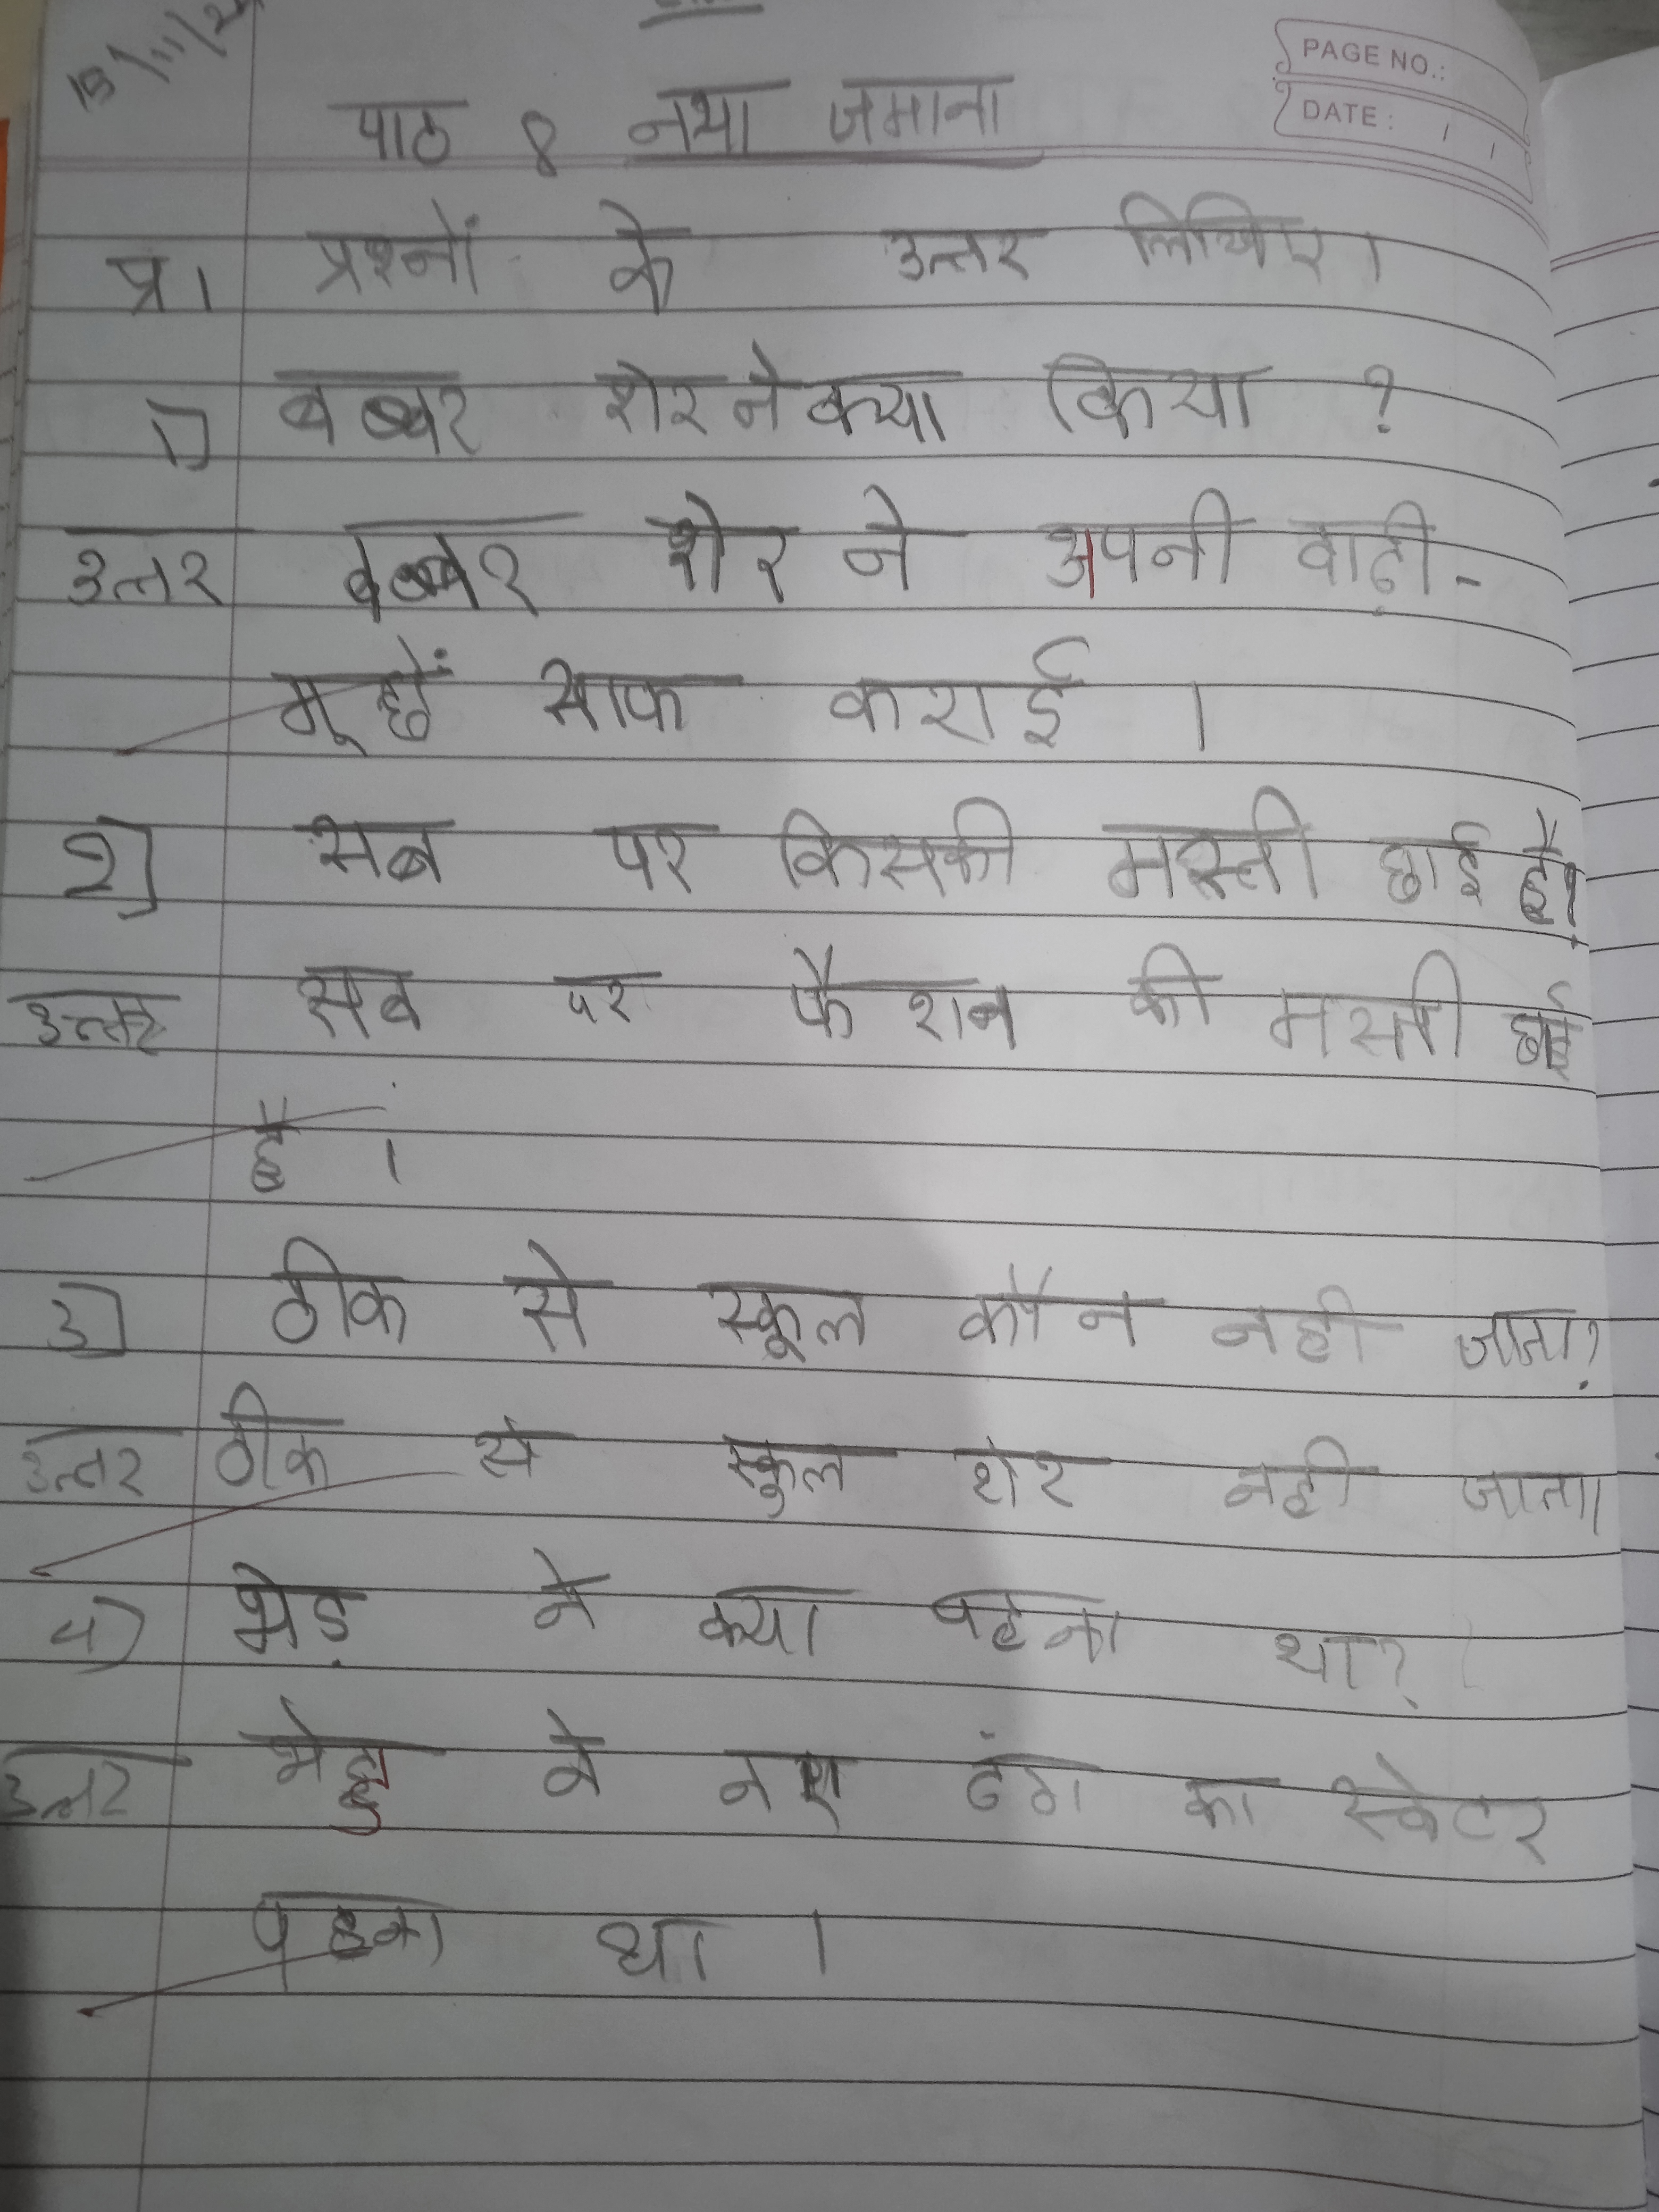 PAGE NO.:
DATE: / /
पाठ 8 नया जमाना
प्र। प्रश्नों के उत्तर लिखिए।
1] बब्बर शेर ने क्या किया ?
उत्तर बब्बर शेर ने अपनी दाढ़ी -
मूछें साफ कराई ।
2] सब पर किसकी मस्ती छाई है?
उत्तर सब पर फैशन की मस्ती छाई
है ।
3] ठीक से स्कूल कौन नही जाता?
उत्तर ठीक से स्कुल शेर नही जाता।
4) भेड़ ने क्या पहना था?
उत्तर भेड़ ने नए ढंग का स्वेटर
पहना था ।